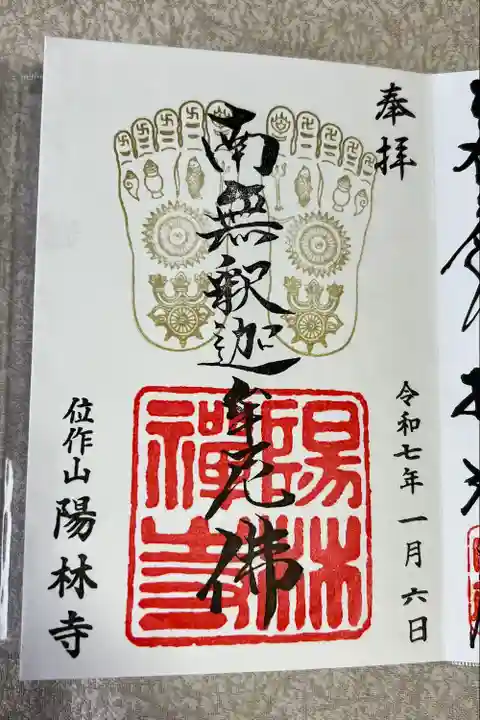 奉拝
令和七年一月六日
南無釈迦牟尼佛
陽林禅寺
位作山陽林寺